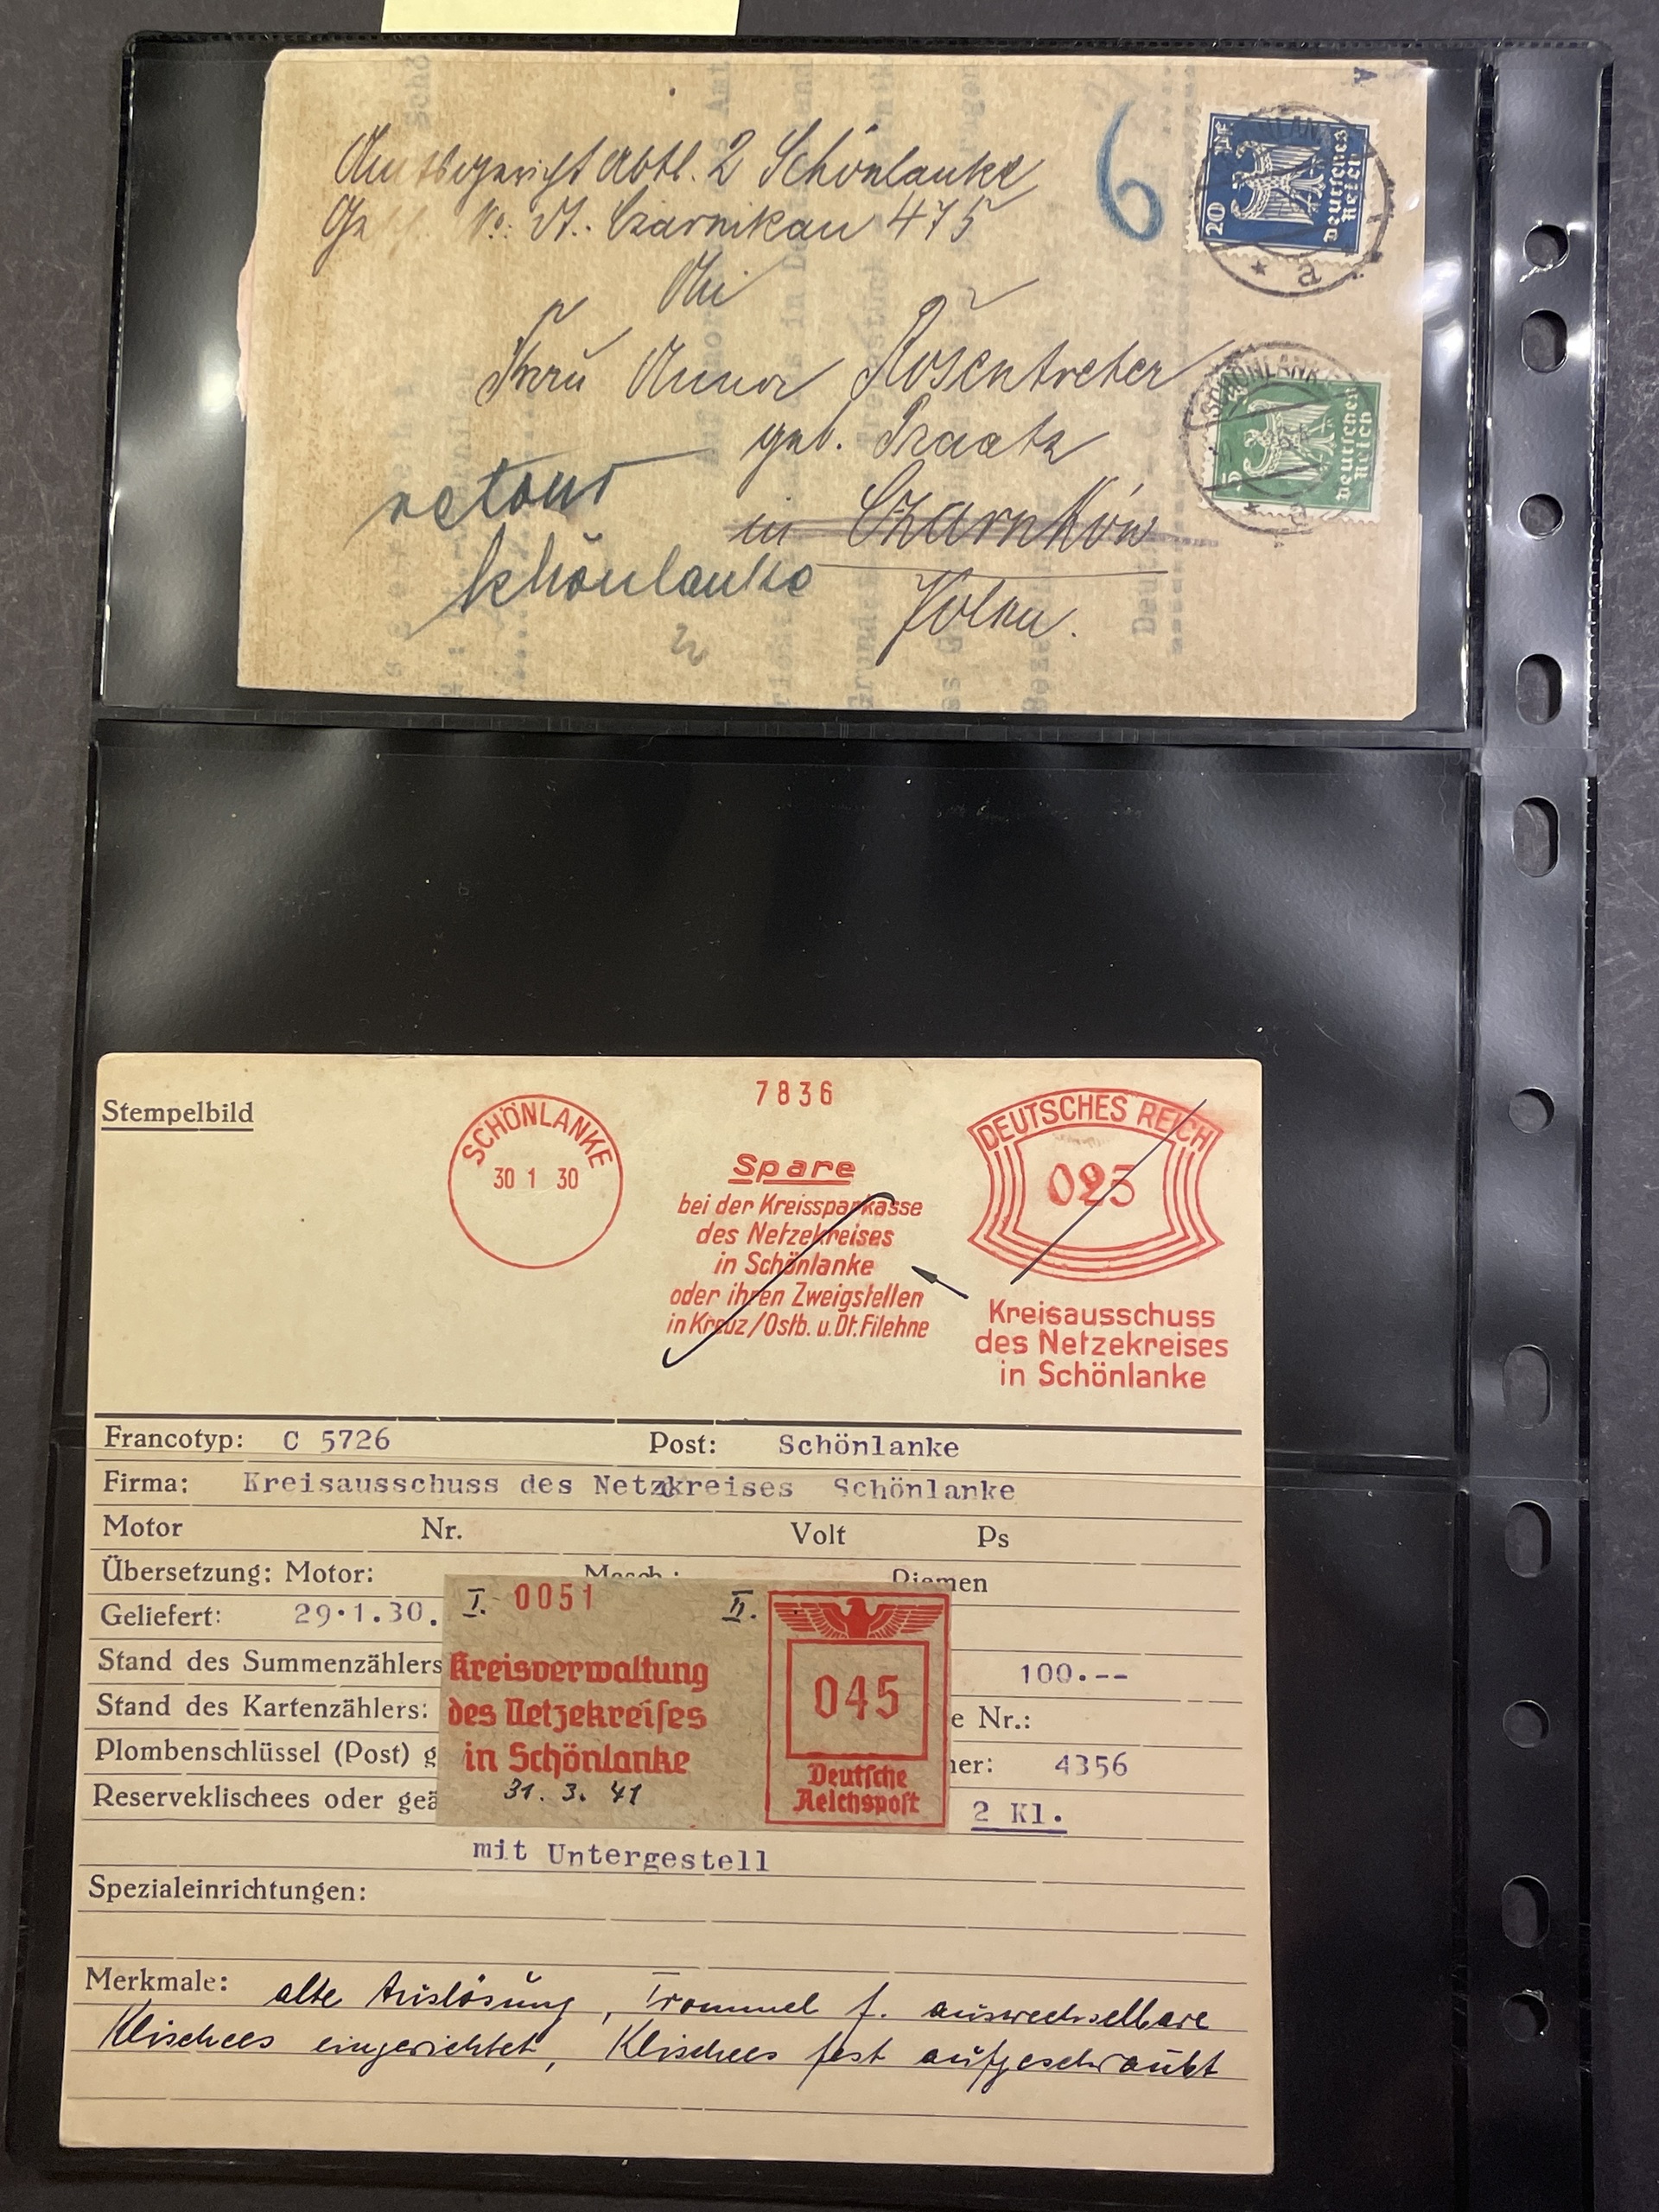 Amtsgericht Abtl. 2 Schönlanke
No: Dt. Czarnikau 475
6
20
Deutsches
Reich
An
Frau Anna Rosentreter
geb. Praatz
in Czarnków
Polen.
retour
Schönlanke
SCHÖNLANKE
5
Deutsches
Reich
a
Stempelbild
SCHÖNLANKE
30 1 30
7836
Spare
bei der Kreissparkasse
des Netzekreises
in Schönlanke
oder ihren Zweigstellen
in Kreuz/Ostb. u. Dt. Filehne
DEUTSCHES REICH
025
Kreisausschuss
des Netzekreises
in Schönlanke
Francotyp: C 5726 Post: Schönlanke
Firma: Kreisausschuss des Netzekreises Schönlanke
Motor Nr. Volt Ps
Übersetzung: Motor: Masch.: Riemen
Geliefert: 29.1.30.
Stand des Summenzählers 100.--
Stand des Kartenzählers: e Nr.:
Plombenschlüssel (Post) g ner: 4356
Reserveklischees oder geä 2 Kl.
mit Untergestell
I. 0051 II.
Kreisverwaltung
des Netzekreises
in Schönlanke
31. 3. 41
045
Deutsche
Reichspost
Spezialeinrichtungen:
Merkmale: alte Auslösung, Trommel f. auswechselbare
Klischees eingerichtet, Klischees fest aufgeschraubt